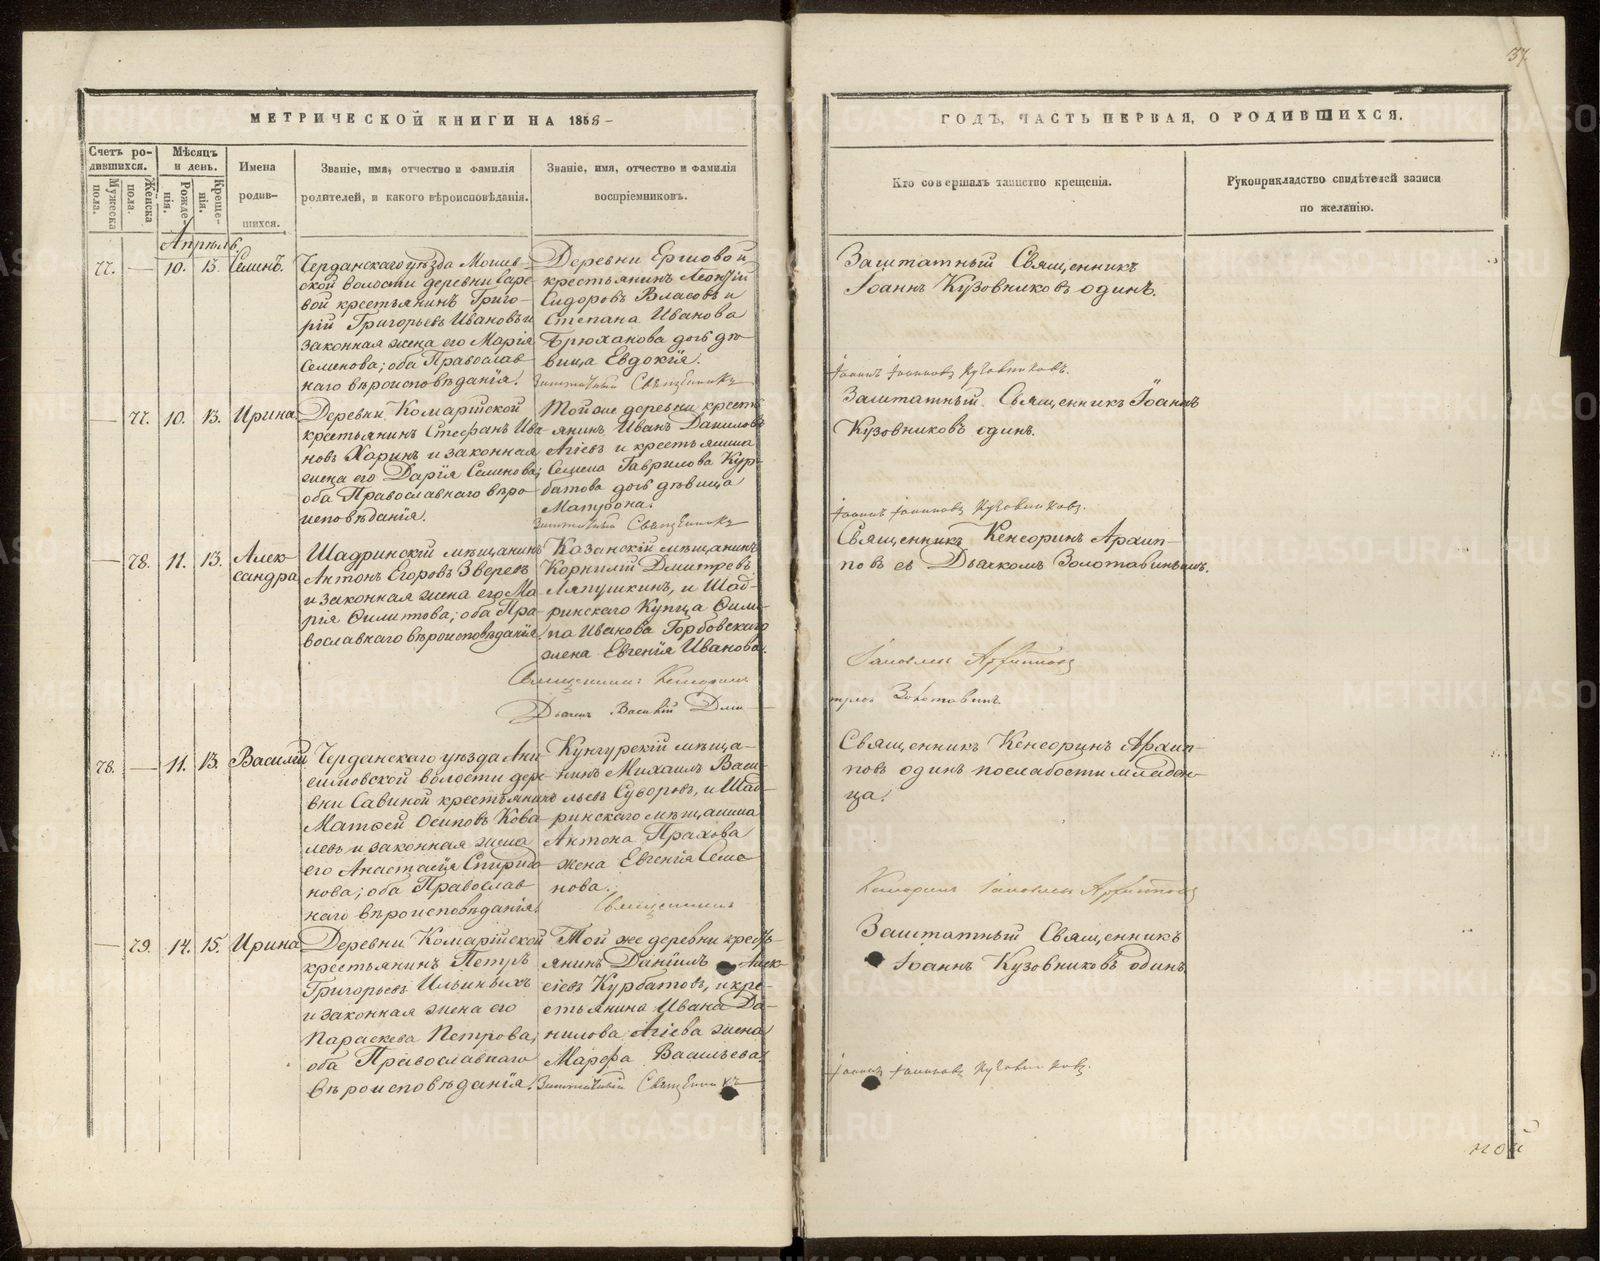 37.
МЕТРИЧЕСКОЙ КНИГИ НА 1858
ГОДЪ, ЧАСТЬ ПЕРВАЯ, О РОДИВШИХСЯ.
Счетъ ро-
дившихся.
Мужеска
пола.
Женска
пола.
Мѣсяцъ
и день.
Рожде-
нія.
Креще-
нія.
Имена
родив-
шихся.
Званіе, имя, отчество и фамилія
родителей, и какого вѣроисповѣданія.
Званіе, имя, отчество и фамилія
воспріемниковъ.
Кто совершалъ таинство крещенія.
Рукоприкладство свидѣтелей записи
по желанію.
Апрѣль.
77. — 10. 13. Семенъ.
Чердынскаго уѣзда
ской волости деревни
вой крестьянинъ Григо-
рій Григорьевъ Ивановъ и
законная жена его Марія
Семенова; оба Православ-
наго вѣроисповѣданія.
Деревни Ершовой
крестьянинъ Леонтій
Сидоровъ Власовъ и
Степана Иванова
Брюханова дочь дѣ-
вица Евдокія.
Заштатный Священникъ
Заштатный Священникъ
Іоаннъ Кузовниковъ одинъ.
Іоаннъ Іоанновъ Кузовниковъ.
— 77. 10. 13. Ирина
Деревни Комарійской
крестьянинъ Стефанъ Ива-
новъ Харинъ и законная
жена его Дарія Семенова;
оба Православнаго вѣро-
исповѣданія.
Той же деревни кресть-
янинъ Иванъ Даниловъ
Агіевъ и крестьянина
Семена Гаврилова Кур-
батова дочь дѣвица
Матрона.
Заштатный Священникъ
Заштатный Священникъ Іоаннъ
Кузовниковъ одинъ.
Іоаннъ Іоанновъ Кузовниковъ.
— 78. 11. 13. Алек-
сандра
Шадринскій мѣщанинъ
Антонъ Егоровъ Зверевъ
и законная жена его Ма-
рія Филипова; оба Пра-
вославнаго вѣроисповѣданія
Казанскій мѣщанинъ
Корнилій Дмитревъ
Ляпушкинъ, и Шад-
ринскаго Купца Фили-
па Иванова Горбовскаго
жена Евгенія Иванова.
Священникъ Кенсоринъ
Дьячекъ Василій
Священникъ Кенсоринъ Архип-
повъ съ Дьячкомъ Золотавинымъ.
Архиповъ
Золотавинъ
78. — 11. 13. Василій
Чердынскаго уѣзда Ани-
симовской волости дере-
вни Савиной крестьянинъ
Матѳей Осиповъ Кова-
левъ и законная жена
его Анастасія Спиридо-
нова; оба Православ-
наго вѣроисповѣданія.
Кунгурскій мѣща-
нинъ Михаилъ Васи-
льевъ Суворовъ, и Шад-
ринскаго мѣщанина
Антона Прахова
жена Евгенія Семе-
нова.
Священникъ
Священникъ Кенсоринъ Архип-
повъ одинъ по слабости младен-
ца.
Кенсоринъ Архиповъ
— 79. 14. 15. Ирина
Деревни Комарійской
крестьянинъ Петръ
Григорьевъ Ильиныхъ
и законная жена его
Параскева Петрова;
оба Православнаго
вѣроисповѣданія.
Той же деревни кресть-
янинъ Даніилъ Алек-
сіевъ Курбатовъ, и кре-
стьянина Ивана Да-
нилова Агіева жена
Марфа Васильева.
Заштатный Священникъ
Заштатный Священникъ
Іоаннъ Кузовниковъ одинъ.
Іоаннъ Іоанновъ Кузовниковъ.
ной
METRIKI.GASO-URAL.RU